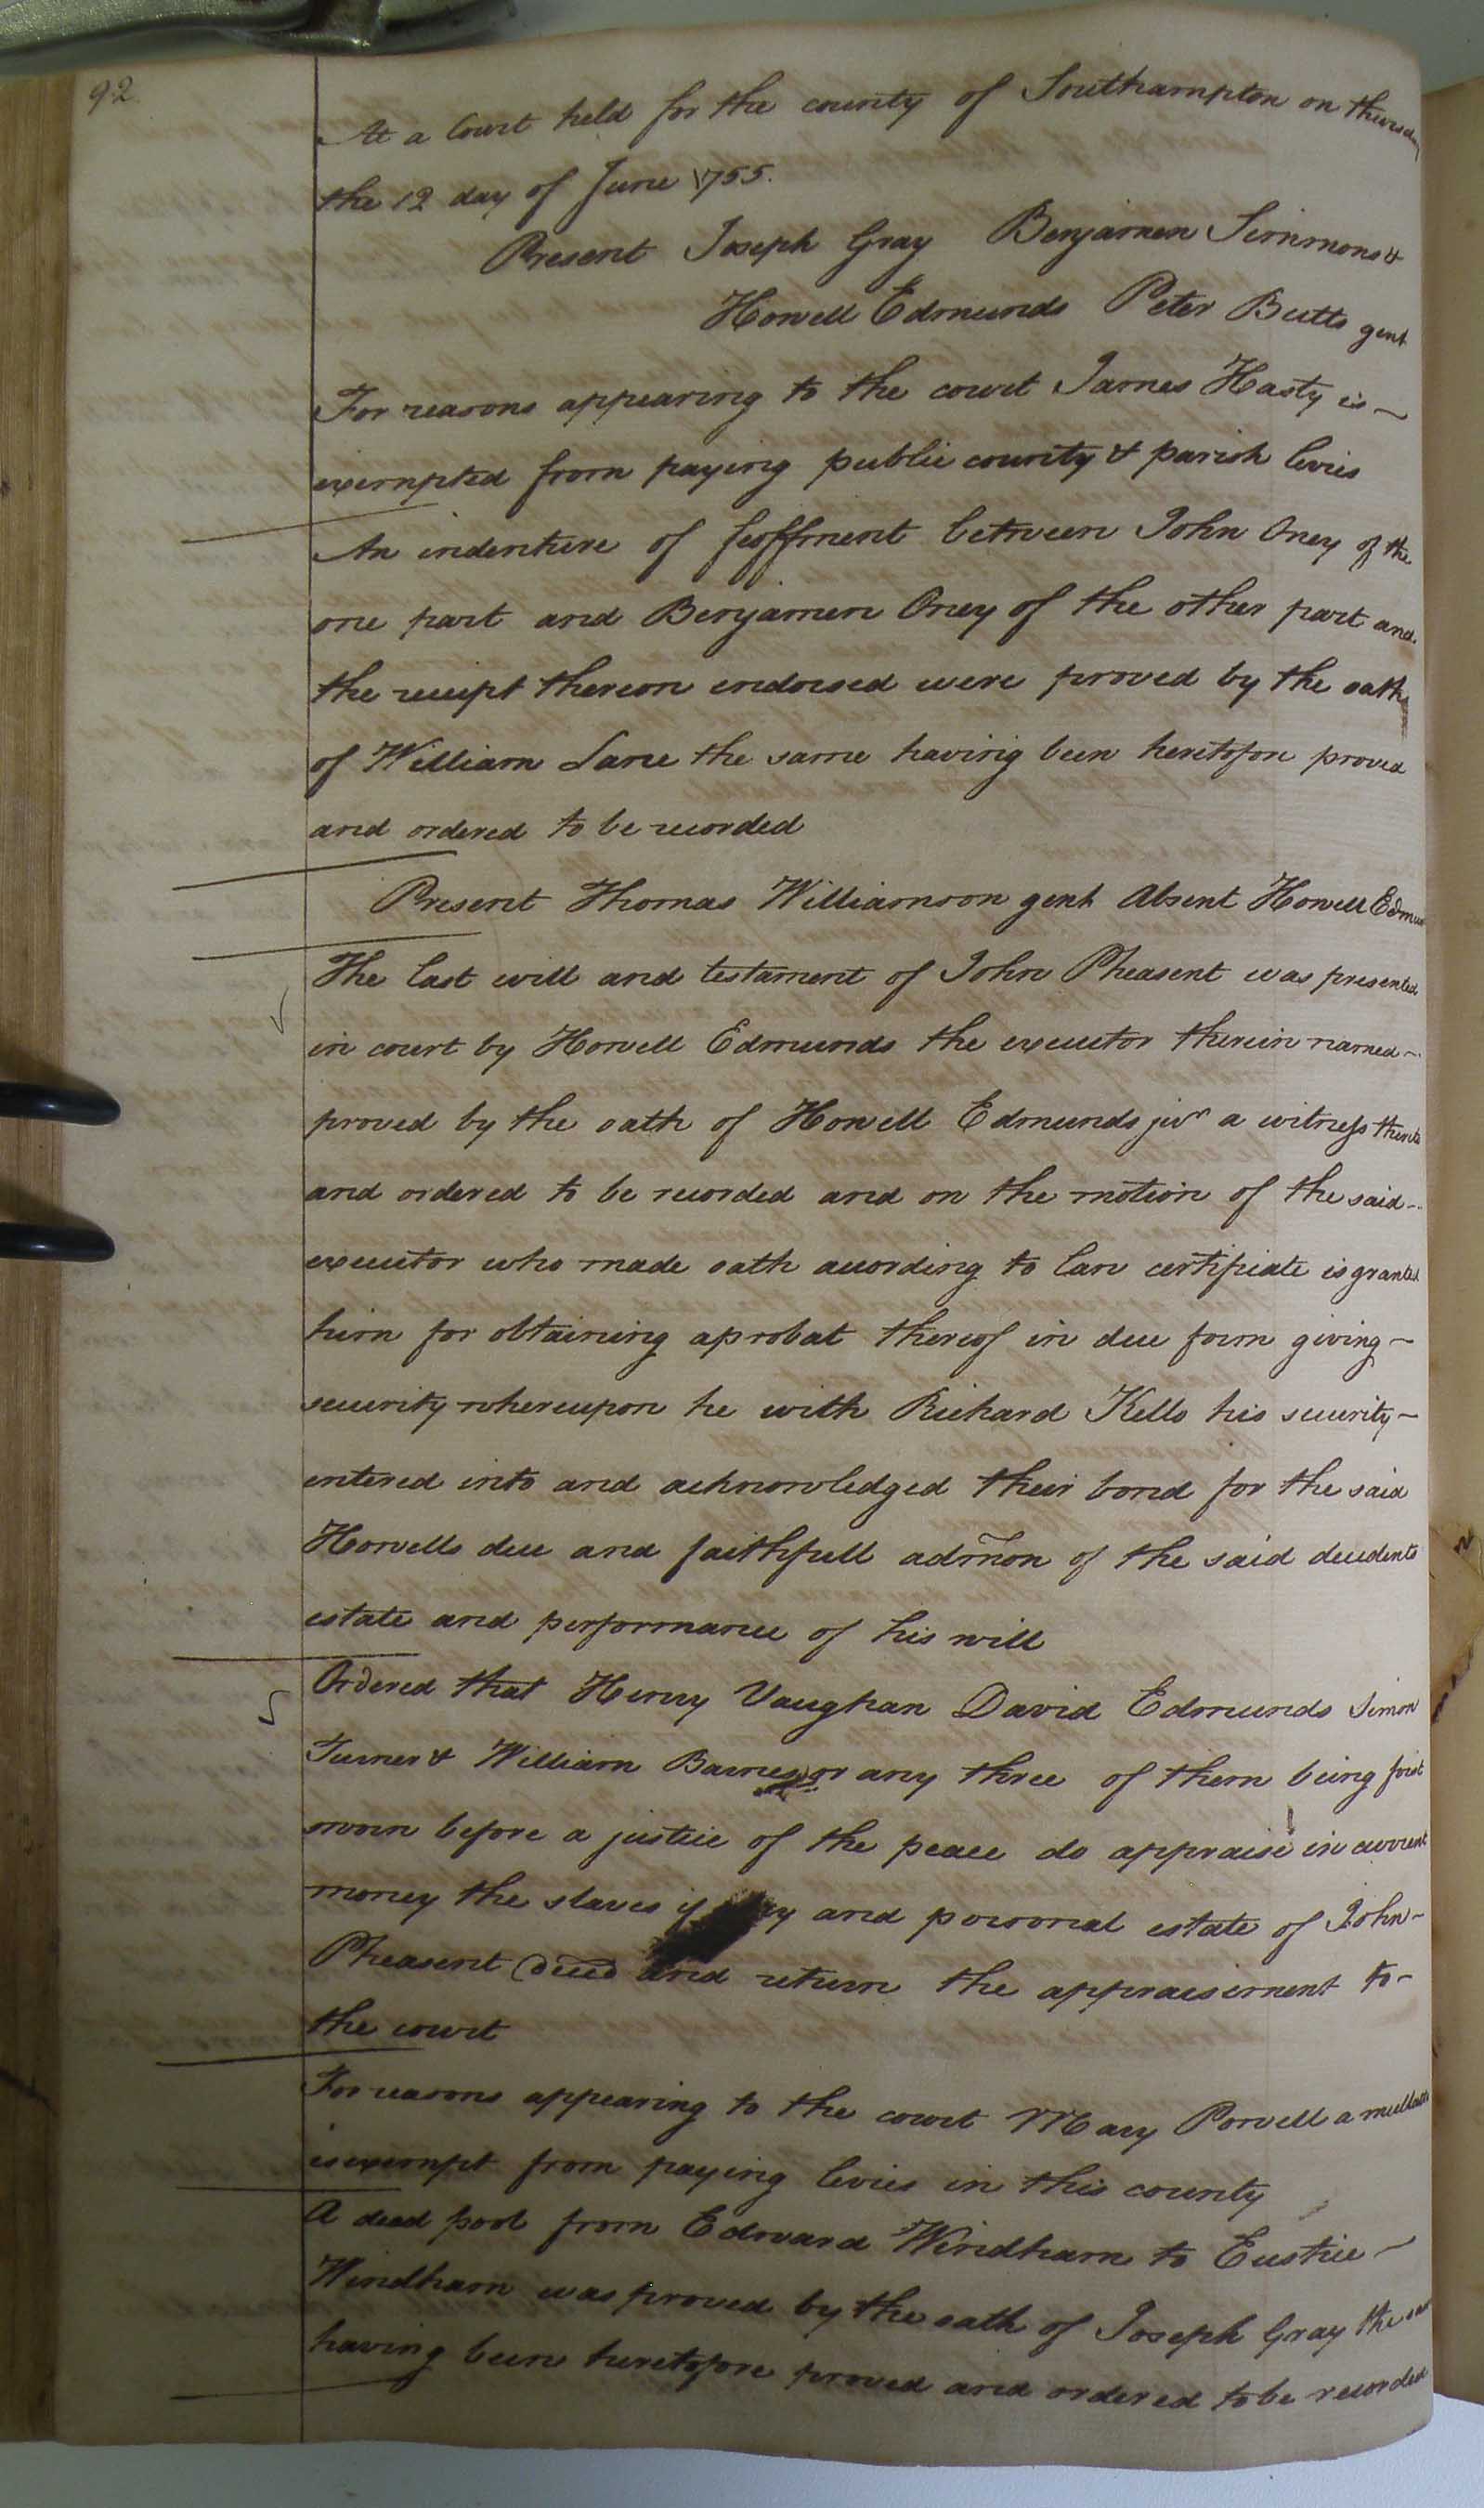 92.
At a Court held for the county of Southampton on thursday
the 12 day of June 1755.
Present Joseph Gray Benjamen Simmons &
Howell Edmunds Peter Butts gent
For reasons appearing to the court James Hasty is –
exempted from paying public county & parish levies
An indenture of feoffment between John Oney of the
one part and Benjamen Oney of the other part and
the receipt thereon endorsed were proved by the oath
of William Lane the same having been heretofore proved
and ordered to be recorded
Present Thomas Williamson gent Absent Howell Edmun
The last will and testament of John Pheasent was presented
in court by Howell Edmunds the executor therein named –
proved by the oath of Howell Edmunds junr a witness thereto
and ordered to be recorded and on the motion of the said –
executor who made oath according to law certificate is granted
him for obtaining a probat thereof in due form giving –
security whereupon he with Richard Kello his security –
entered into and acknowledged their bond for the said
Howells due and faithfull admon of the said decedents
estate and performance of his will
Ordered that Henry Vaughan David Edmunds Simon
Turner & William Barnes or any three of them being first
sworn before a justice of the peace do appraise in current
money the slaves if and personal estate of John –
Pheasent deced and return the appraisement to –
the court
For reasons appearing to the court Mary Powell a mullatto
is exempt from paying levies in this county
A deed pool from Edward Windham to Eustice –
Windham was proved by the oath of Joseph Gray the same
having been heretofore proved and ordered to be recorded